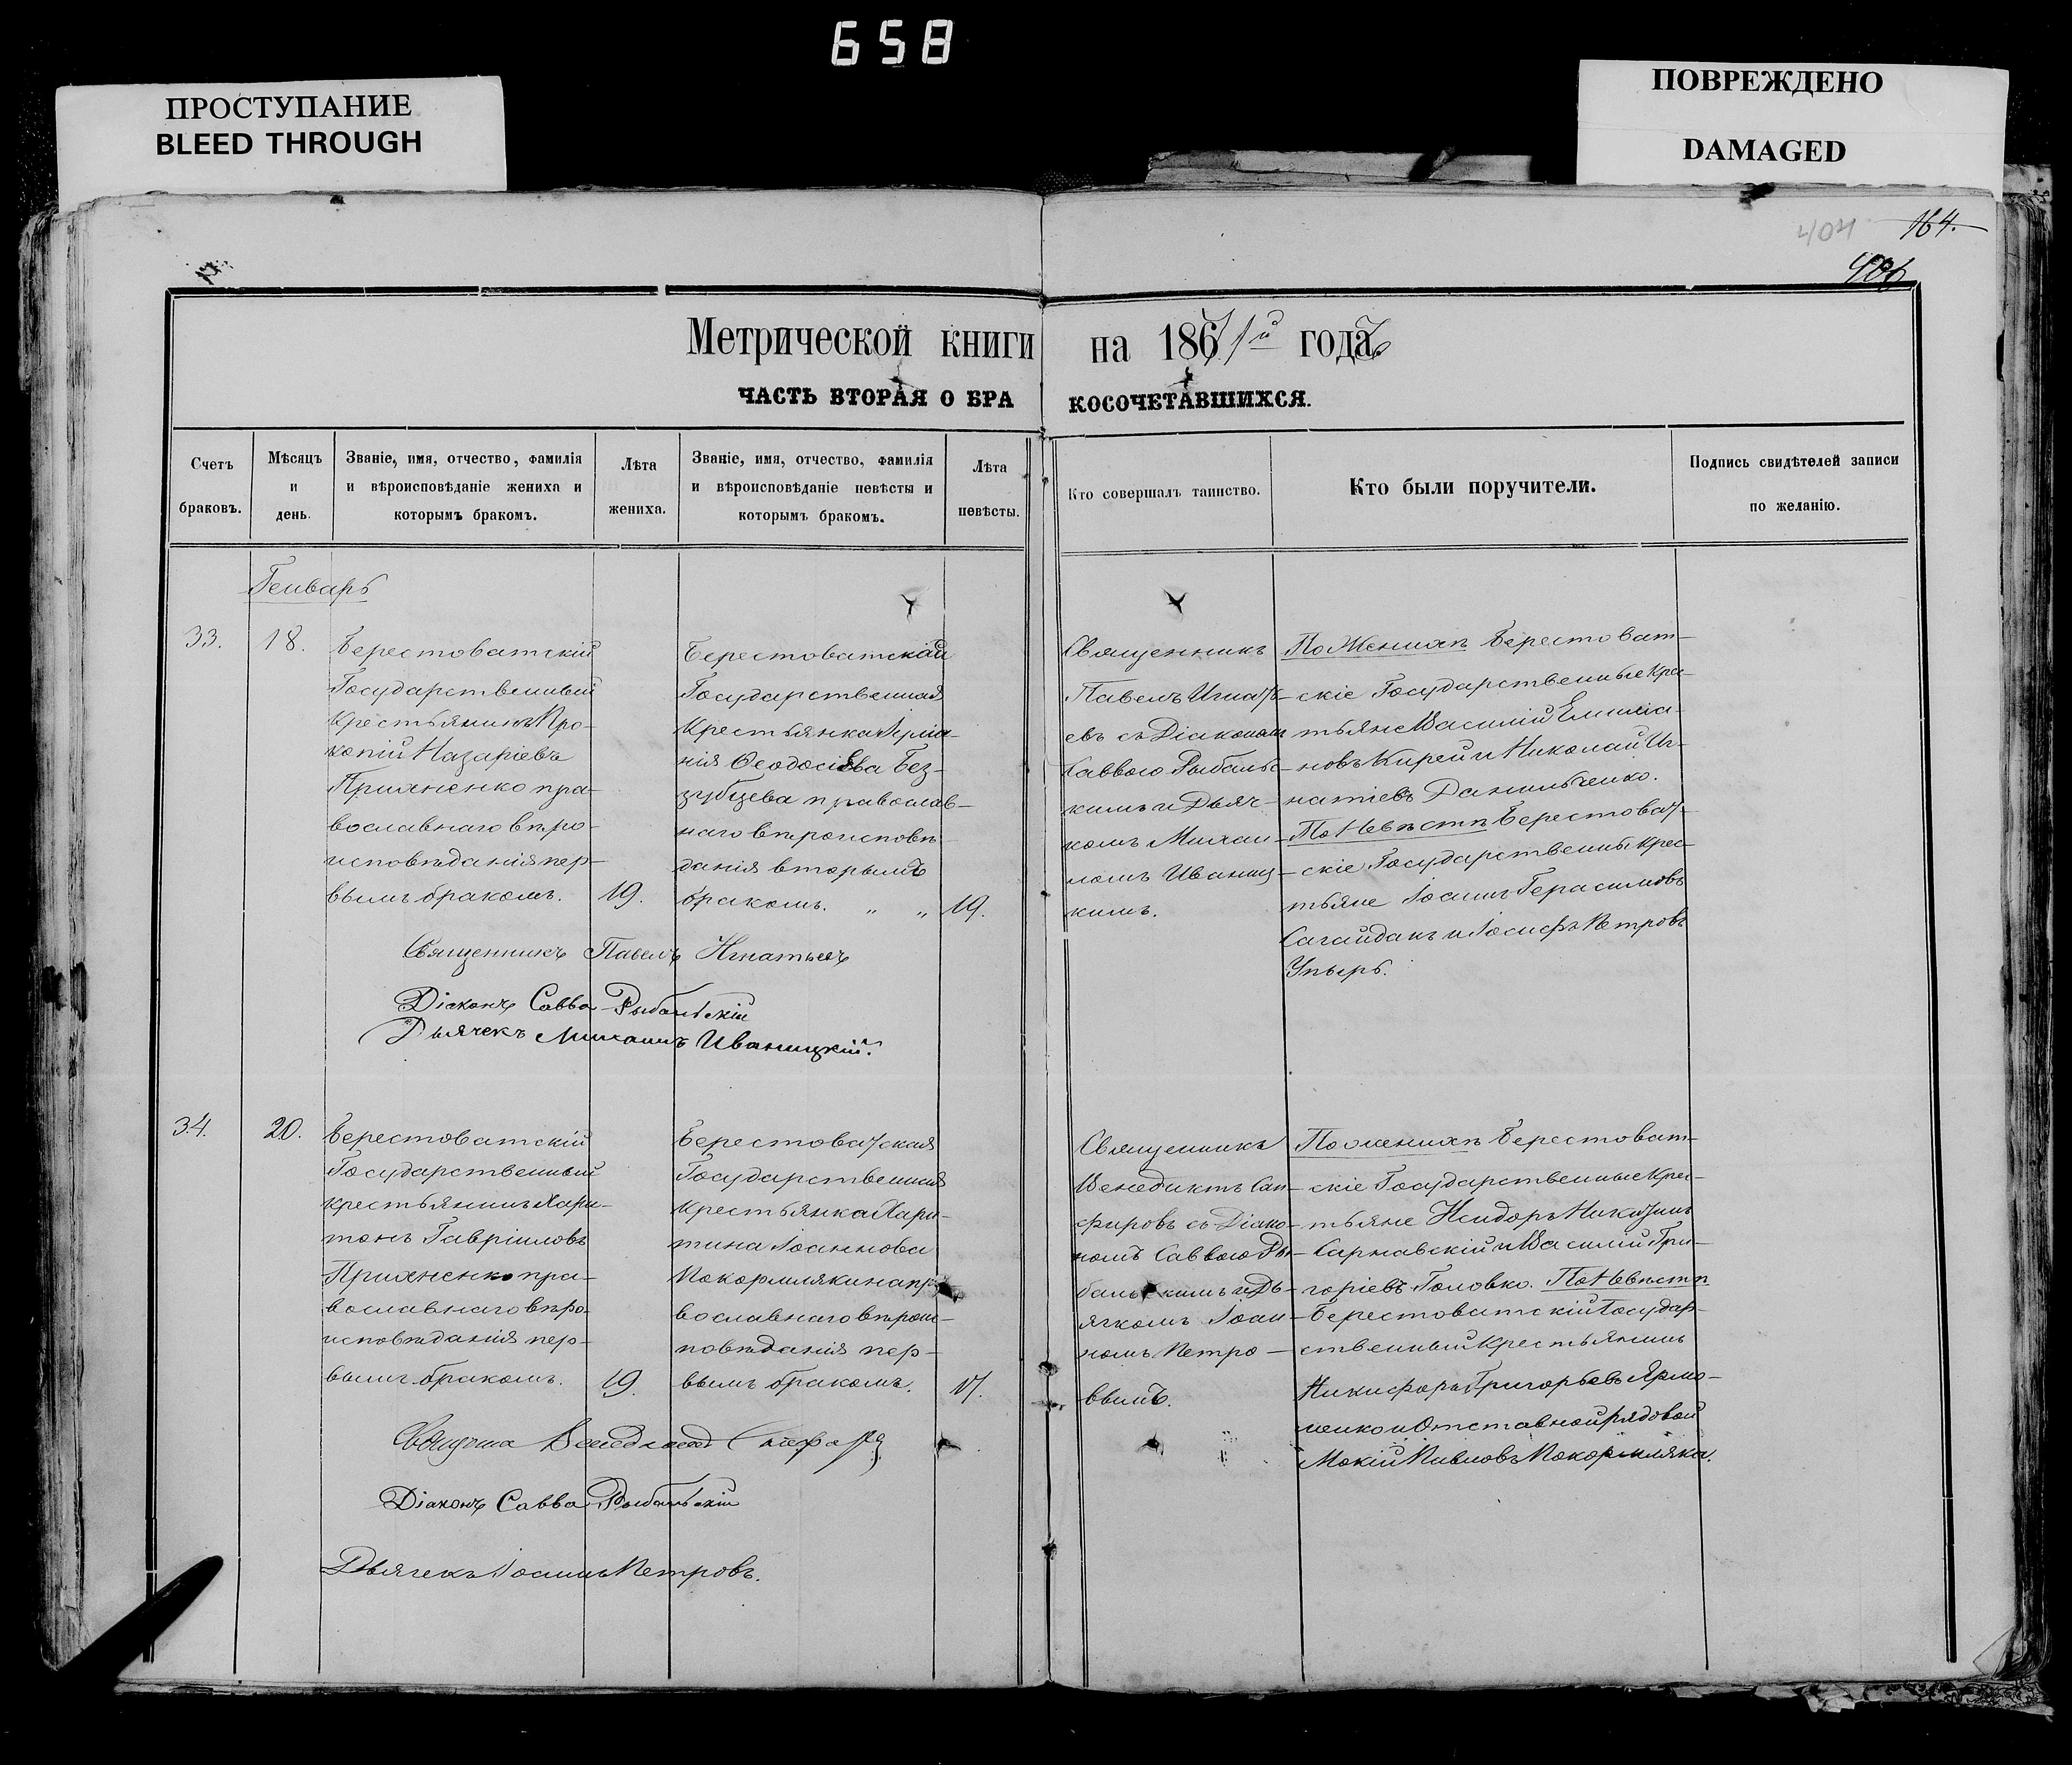 658
ПРОСТУПАНИЕ
BLEED THROUGH
ПОВРЕЖДЕНО
DAMAGED
404 164.
406
Метрической книги на 1871й годъ
ЧАСТЬ ВТОРАЯ О БРАКОСОЧЕТАВШИХСЯ.
Счетъ браковъ.
Мѣсяцъ и день.
Званіе, имя, отчество, фамилія и вѣроисповѣданіе жениха и которымъ бракомъ.
Лѣта жениха.
Званіе, имя, отчество, фамилія и вѣроисповѣданіе невѣсты и которымъ бракомъ.
Лѣта невѣсты.
Кто совершалъ таинство.
Кто были поручители.
Подпись свидѣтелей записи по желанію.
Генварь
33.
18.
Берестоватскій
Государственный
Крестьянинъ Про-
копій Назаріевъ
Прихненко пра-
вославнаго вѣро-
исповѣданія пер-
вымъ бракомъ.
19.
Берестоватская
Государственная
Крестьянка
нія Ѳеодосіева Без-
зубцева православ-
наго вѣроисповѣ
данія вторымъ
бракомъ. " "
19.
Священникъ
Павелъ Игнать-
евъ съ Діакономъ
Саввою Рыбальс-
кимъ и Дьяч-
комъ Михаи-
ломъ Иваниц-
кимъ.
По Женихѣ Берестоват-
скіе Государственные Кре-
стьяне Василій Емилиа-
новъ Кирей и Николай Иг-
натіевъ Данильченко.
По Невѣстѣ Берестоват-
скіе Государственные Крес-
тьяне Іоаннъ Герасимовъ
Сагайдакъ и Іосифъ Петровъ
Упырь.
Священникъ Павелъ Игнатьевъ
Діаконъ Савва Рыбальскій
Дьячекъ Михаилъ Иваницкій.
34.
20.
Берестоватскій
Государственный
крестьянинъ Хари-
тонъ Гавріиловъ
Прихненко пра-
вославнаго вѣро-
исповѣданія пер-
вымъ бракомъ.
19.
Берестоватская
Государственная
Крестьянка Хари-
тина Іоаннова
Покормлякина пра
вославнаго вѣроис-
повѣданія пер-
вымъ бракомъ.
17.
Священникъ
Венедиктъ Сап-
фировъ съ Діако-
номъ Саввою Ры-
бальскимъ и Дь-
ячкомъ Іоан-
номъ Петро-
вымъ.
По женихѣ Берестоват-
скіе Государственные Крес-
тьяне Исидоръ Никитинъ
Сарнавскій и Василій Гри-
горіевъ Головко. По Невѣстѣ
Берестоватскій Государ-
ственный Крестьянинъ
Никифоръ Григорьевъ Ярмо-
ленко и Отставной рядовой
Мокій Павловъ Покормляка.
Діаконъ Савва Рыбальскій
Дьячекъ Іоаннъ Петровъ.